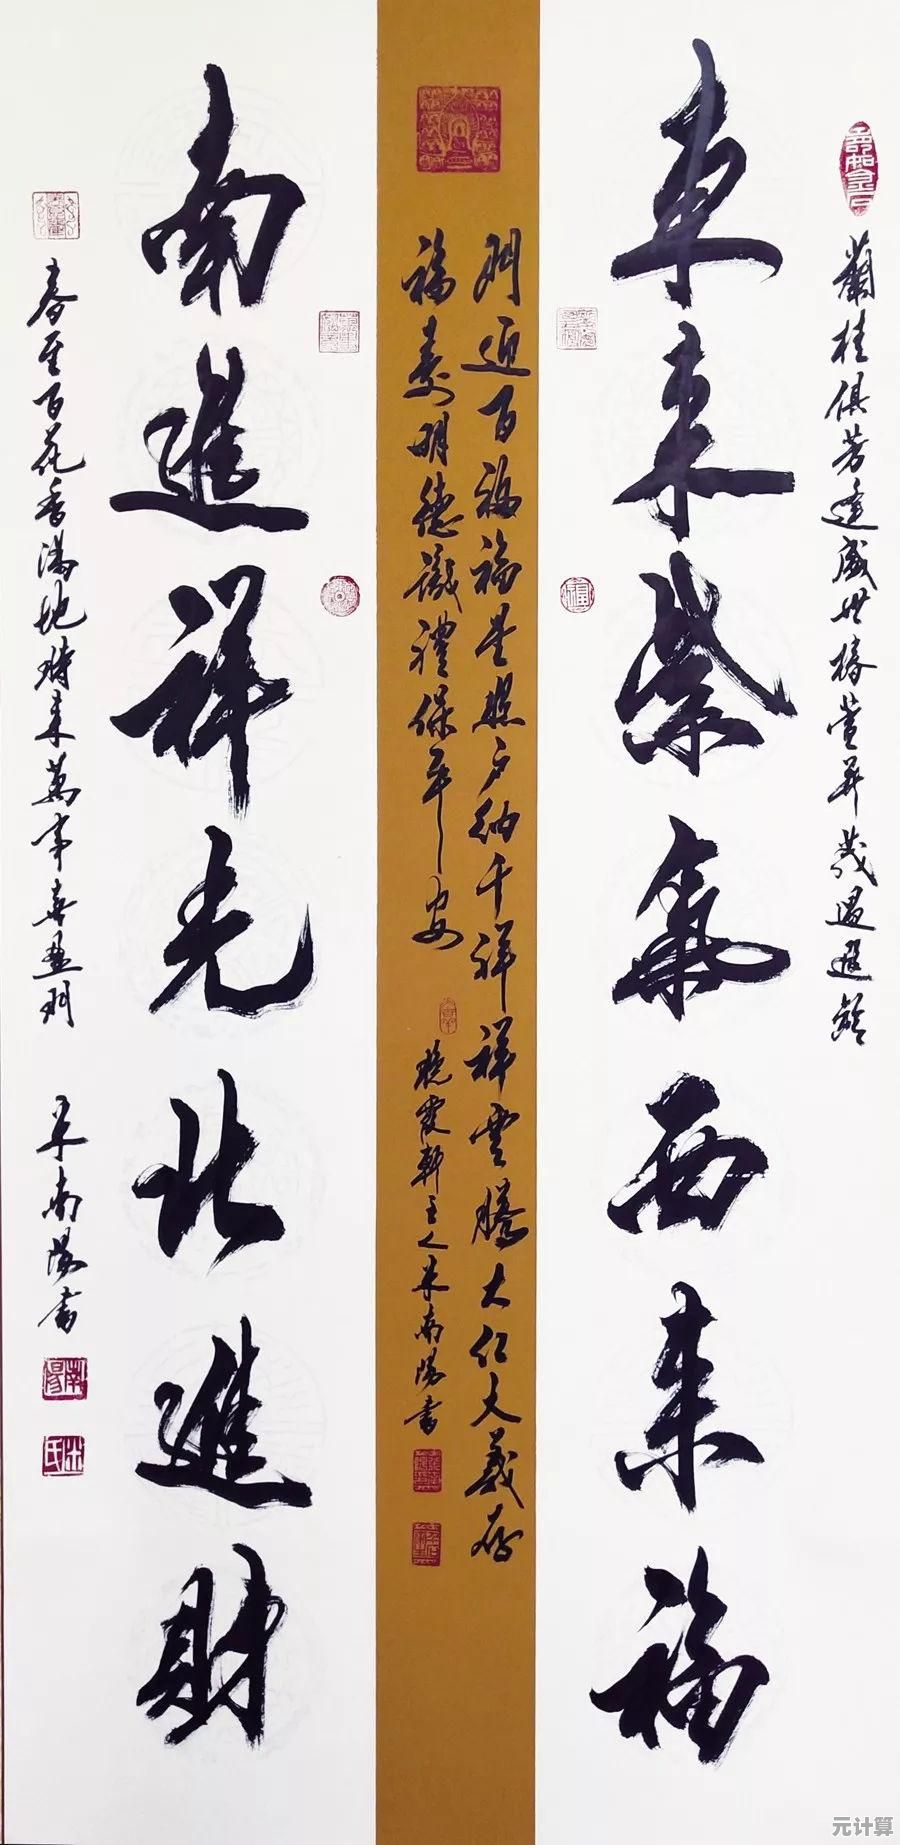 蘭桂俱芳逢盛世椿萱并茂遇遐齡
東來紫氣西來福
門迎百福福星照戶納千祥祥雲騰大仁大義存
福壽明德識禮保平安
晚霞軒主人米南陽書
南進祥光北進財
春至百花香滿地時來萬事喜盈門
米南陽書
南陽
米氏
元计算